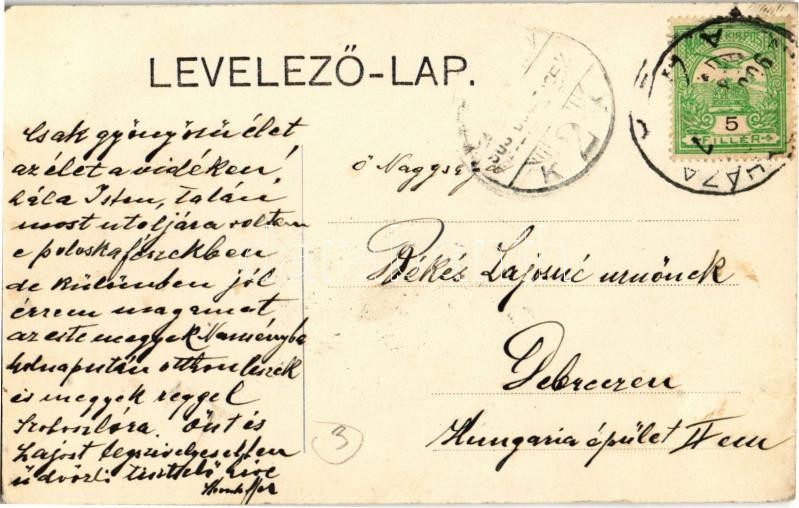 LEVELEZŐ-LAP.
Csak gyönyörű élet
az élet a vidéken!
hála Isten, talán
most utoljára voltam
e poloskafészekben
de különben jól
érzem magamat
az este megyek Naményba
holnapután otthon leszek
és megyek reggel
Szoboszlóra. Önt és
Lajost legszivélyesebben
üdvözli tisztelő hive
Ő Nagysága
Békés Lajosné urnőnek
Debreczen
Hungaria épület II em
5
FILLÉR
3